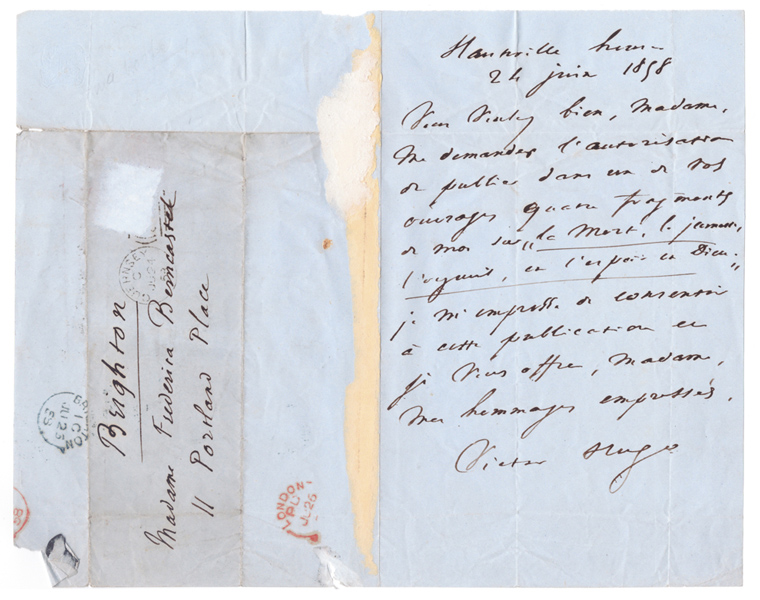 Hauteville house
24 juin 1858
Vous voulez bien, Madame,
me demander l'autorisation
de publier dans un de vos
ouvrages quatre fragments
de moi sur "la Mort, la jeunesse,
l'orgueil, et l'espoir en Dieu."
je m'empresse de consentir
à cette publication et
je vous offre, Madame,
mes hommages empressés.
Victor Hugo
Madame Frederica
11 Portland Place
Brighton
GUERNSEY
LONDON